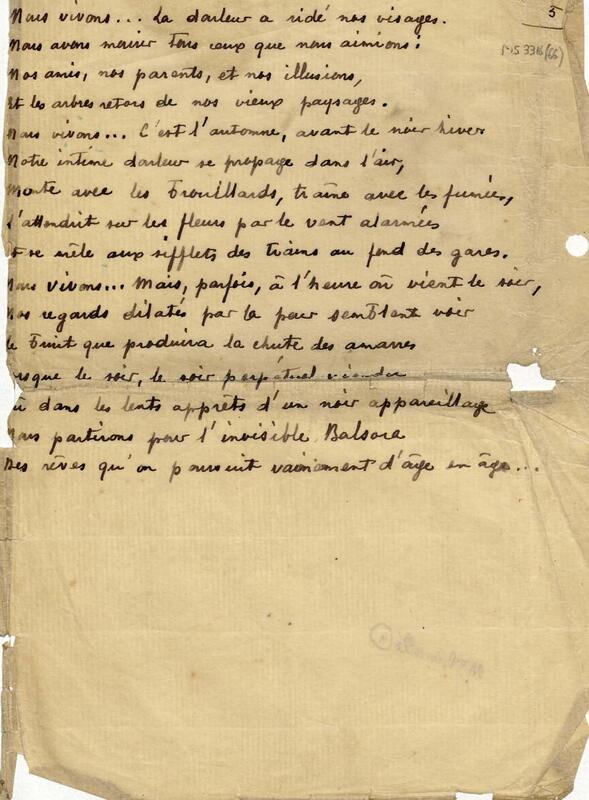 5
MS 3316 (66)
Nous vivons... La douleur a ridé nos visages.
Nous avons mourir tous ceux que nous aimions:
Nos amis, nos parents, et nos illusions,
Et les arbres retors de nos vieux paysages.
Nous vivons... C'est l'automne, avant le noir hiver
Notre intime douleur se propage dans l'air,
Monte avec les brouillards, traîne avec les fumées,
S'attendrit sur les fleurs par le vent alarmées
Et se mêle aux sifflets des trains au fond des gares.
Nous vivons... Mais, parfois, à l'heure où vient le soir,
Nos regards dilatés par la peur semblent voir
Le bruit que produira la chute des amarres
rsque le soir, le soir perpétuel viendra
Où dans les lents apprêts d'un noir appareillage
Nous partirons pour l'invisible Balsora
Des rêves qu'on poursuit vainement d'âge en âge...